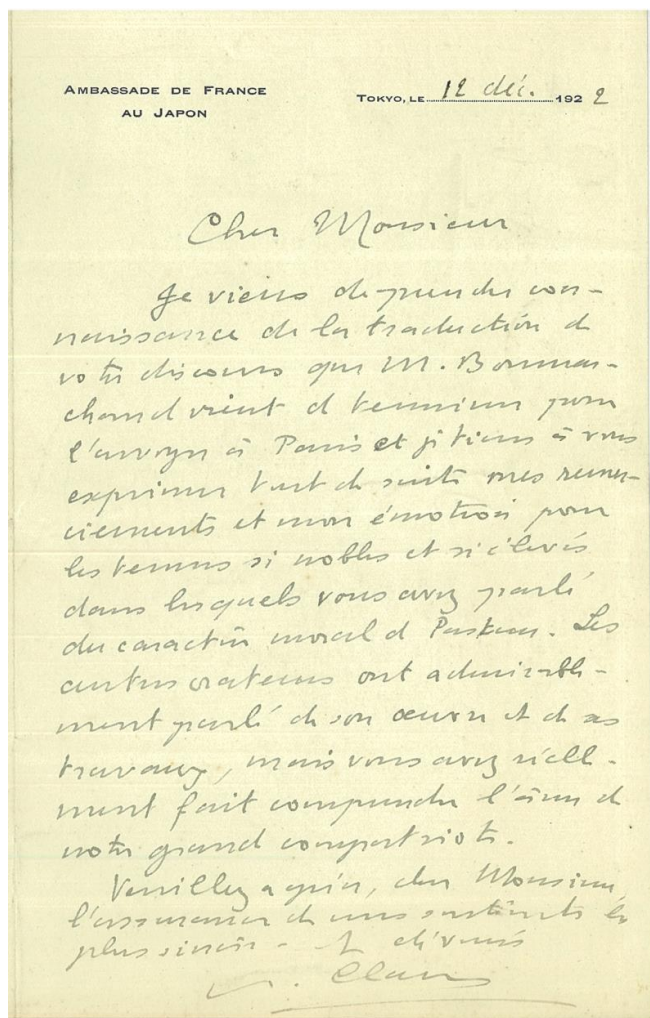 AMBASSADE DE FRANCE
AU JAPON
TOKYO, LE 12 déc. 1922
Cher Monsieur
Je viens de prendre con-
naissance de la traduction de
votre discours que M. Bonmar-
chand vient de terminer pour
l'envoyer à Paris et je tiens à vous
exprimer tout de suite mes remer-
ciements et mon émotion pour
les termes si nobles et si élevés
dans lesquels vous avez parlé
du caractère moral de Pasteur. Les
autres orateurs ont admirable-
ment parlé de son œuvre et de ses
travaux, mais vous avez réelle-
ment fait comprendre l'âme de
notre grand compatriote.
Veuillez agréer, cher Monsieur,
l'assurance de mes sentiments les
plus sincères et dévoués